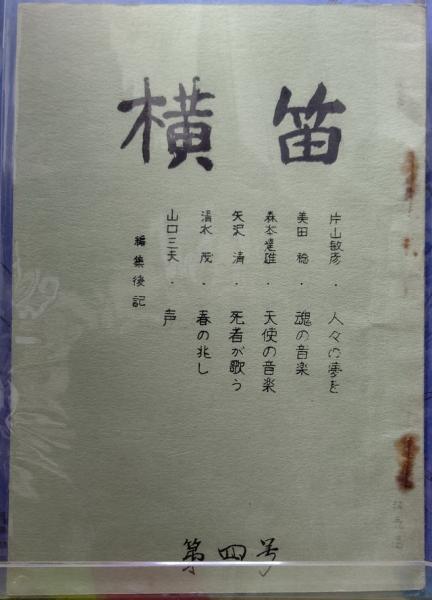 横笛
片山敏彦・人々の夢を
美田稔・魂の音楽
森本達雄・天使の音楽
矢沢清・死者が歌う
清水茂・春の兆し
山口三夫・声
編集後記
第四号